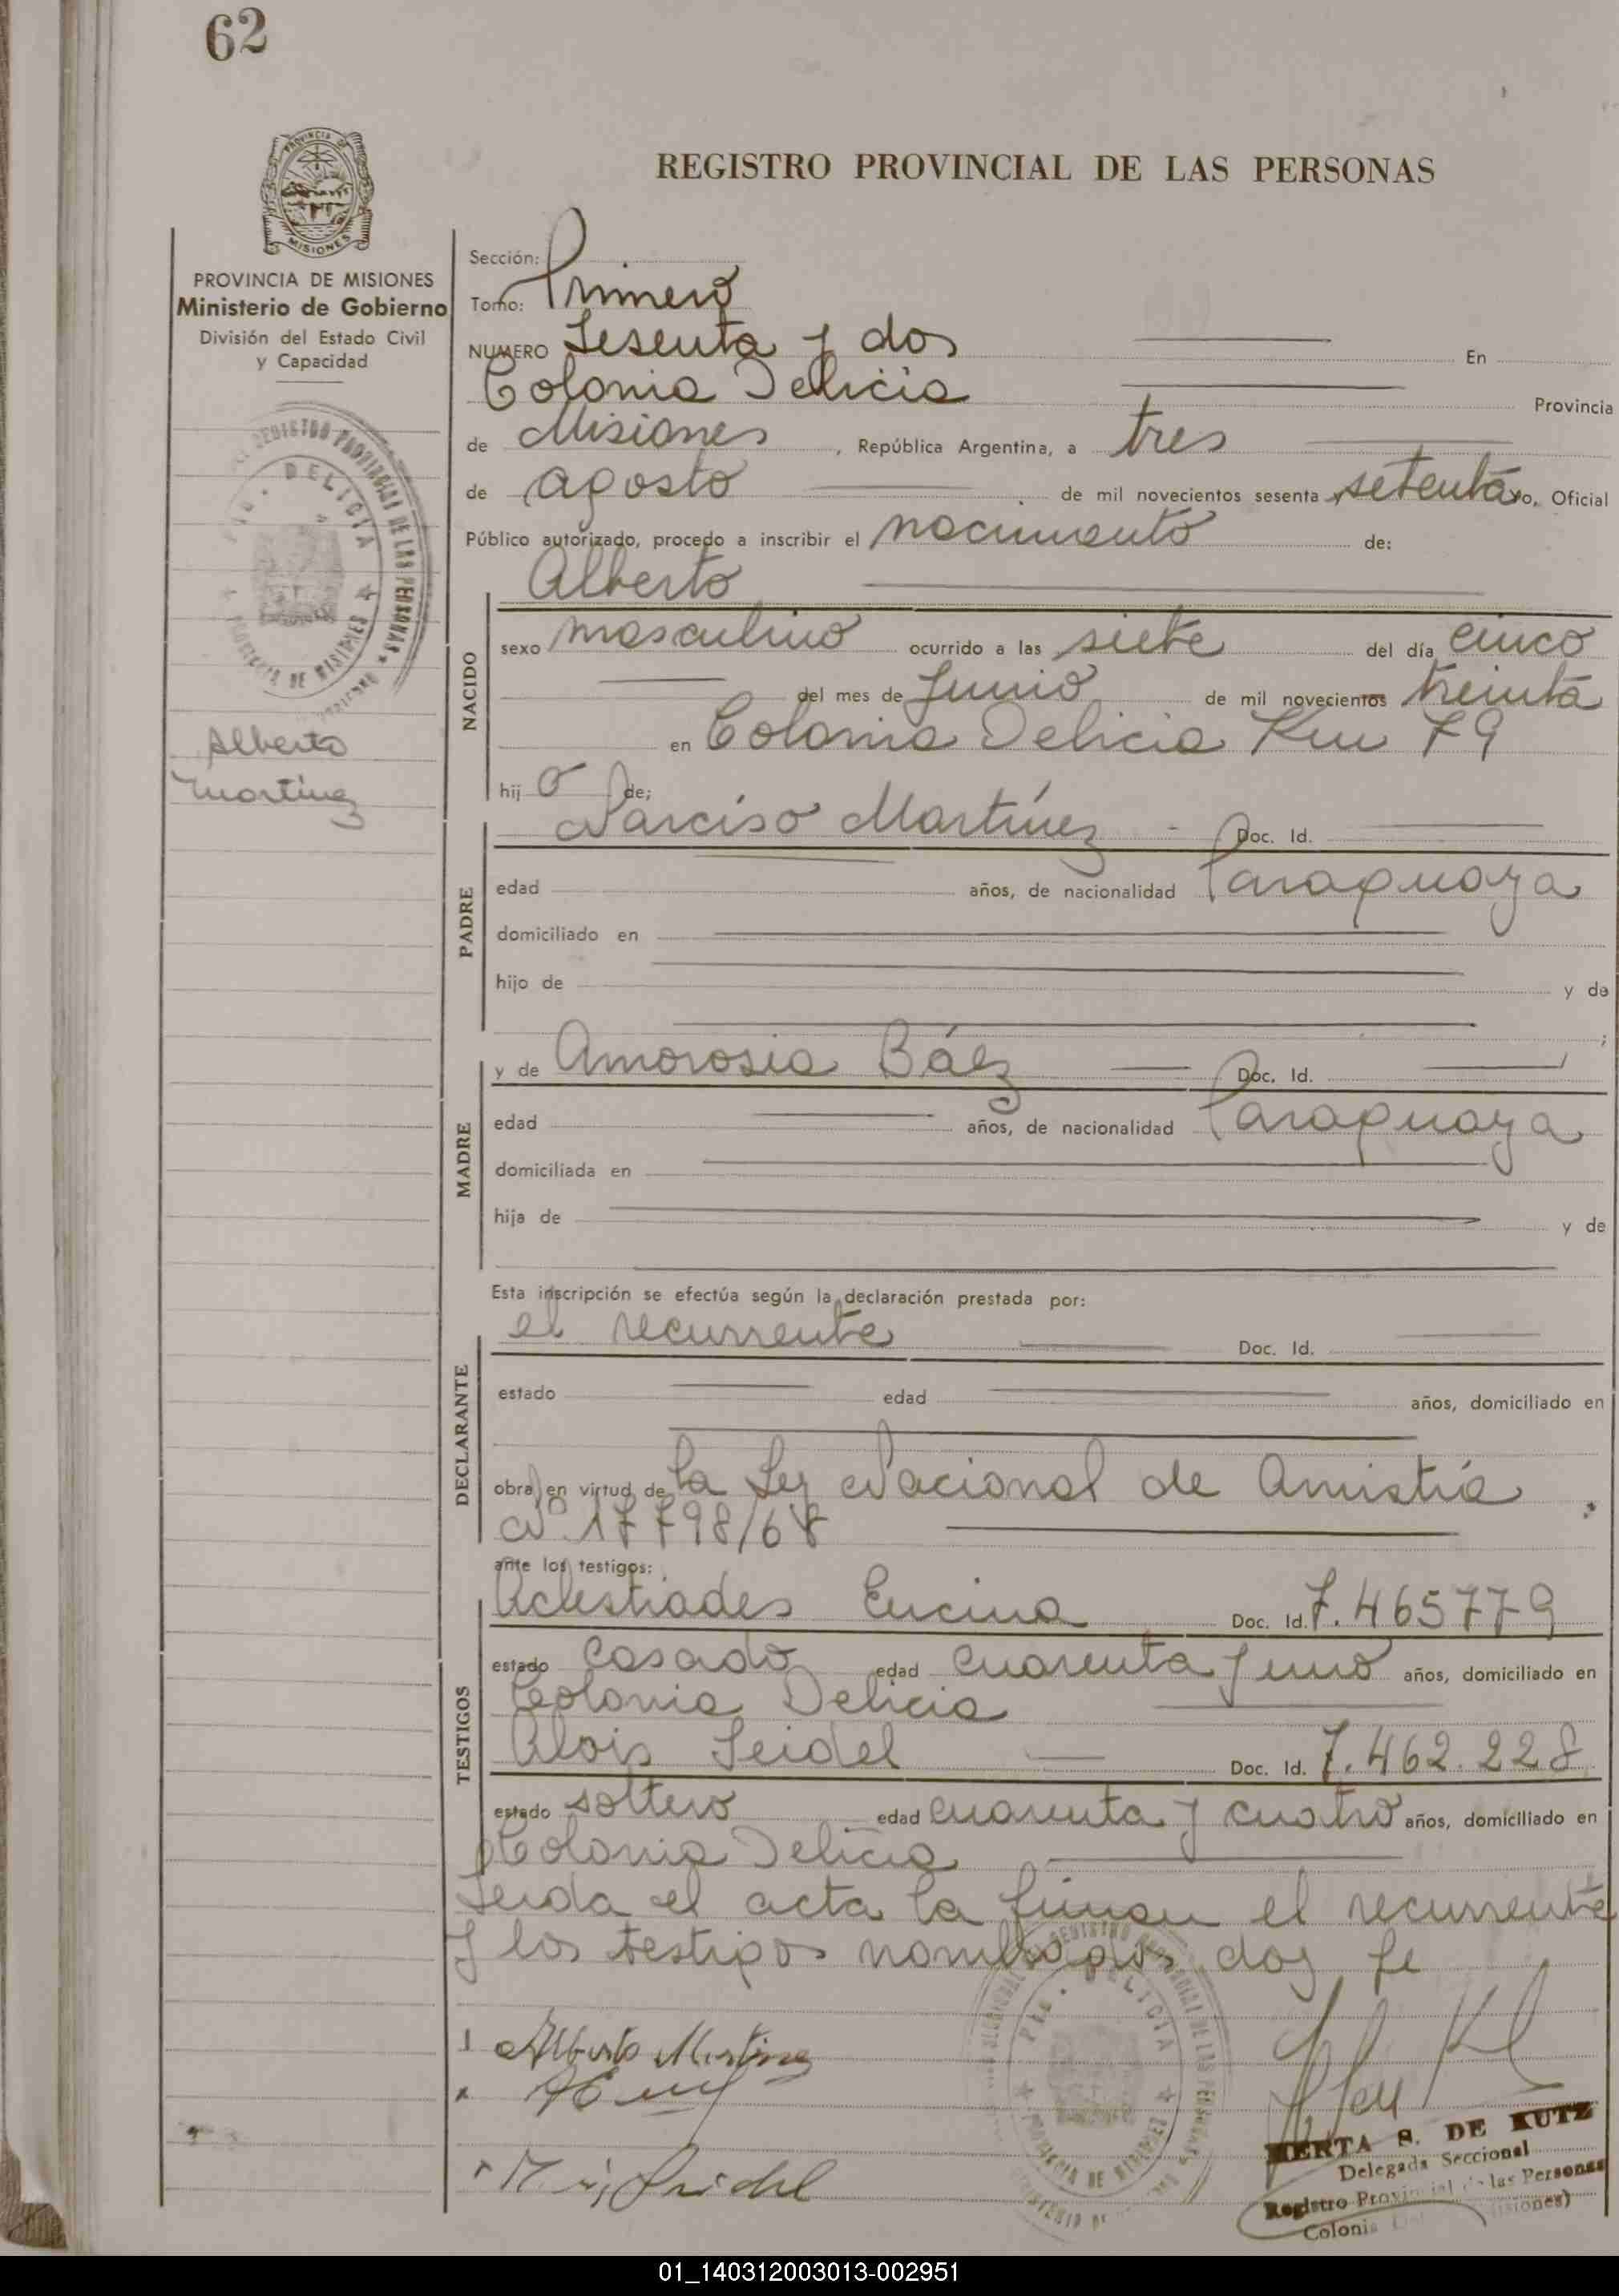 62
PROVINCIA DE
MISIONES
REGISTRO PROVINCIAL DE LAS PERSONAS
PROVINCIA DE MISIONES
Ministerio de Gobierno
División del Estado Civil
y Capacidad
REGISTRO PROVINCIAL DE LAS PERSONAS
DELICIA
PROVINCIA DE MISIONES
Alberto
Martinez
Sección:
Tomo: Primero
NUMERO Sesenta y dos En
Colonia Delicia Provincia
de Misiones, República Argentina, a tres
de agosto de mil novecientos sesenta setenta yo, Oficial
Público autorizado, procedo a inscribir el nacimiento de:
Alberto
NACIDO
sexo masculino ocurrido a las siete del día cinco
del mes de Junio de mil novecientos treinta
en Colonia Delicia Km 79
hij o de;
PADRE
Narciso Martínez - Doc. Id.
edad años, de nacionalidad Paraguaya
domiciliado en
hijo de y de
;
MADRE
y de Amorosia Báez Doc. Id.
edad años, de nacionalidad Paraguaya
domiciliada en
hija de y de
Esta inscripción se efectúa según la declaración prestada por:
DECLARANTE
el recurrente Doc. Id.
estado edad años, domiciliado en
obra en virtud de la Ley Nacional de Amistía.
Nº 17798/68
ante los testigos:
TESTIGOS
Encina Doc. Id. 7.465779
estado casado edad cuarenta y uno años, domiciliado en
Colonia Delicia
Alois Seidel Doc. Id. 7.462.228
estado soltero edad cuarenta y cuatro años, domiciliado en
Colonia Delicia
Leida el acta la firman el recurrente
y los testigos nombrados, doy fe
DELICIA
Alberto Martinez
HERTA S. DE KUTZ
Delegada Seccional
Registro Provincial de las Personas
Colonia
01_140312003013-002951